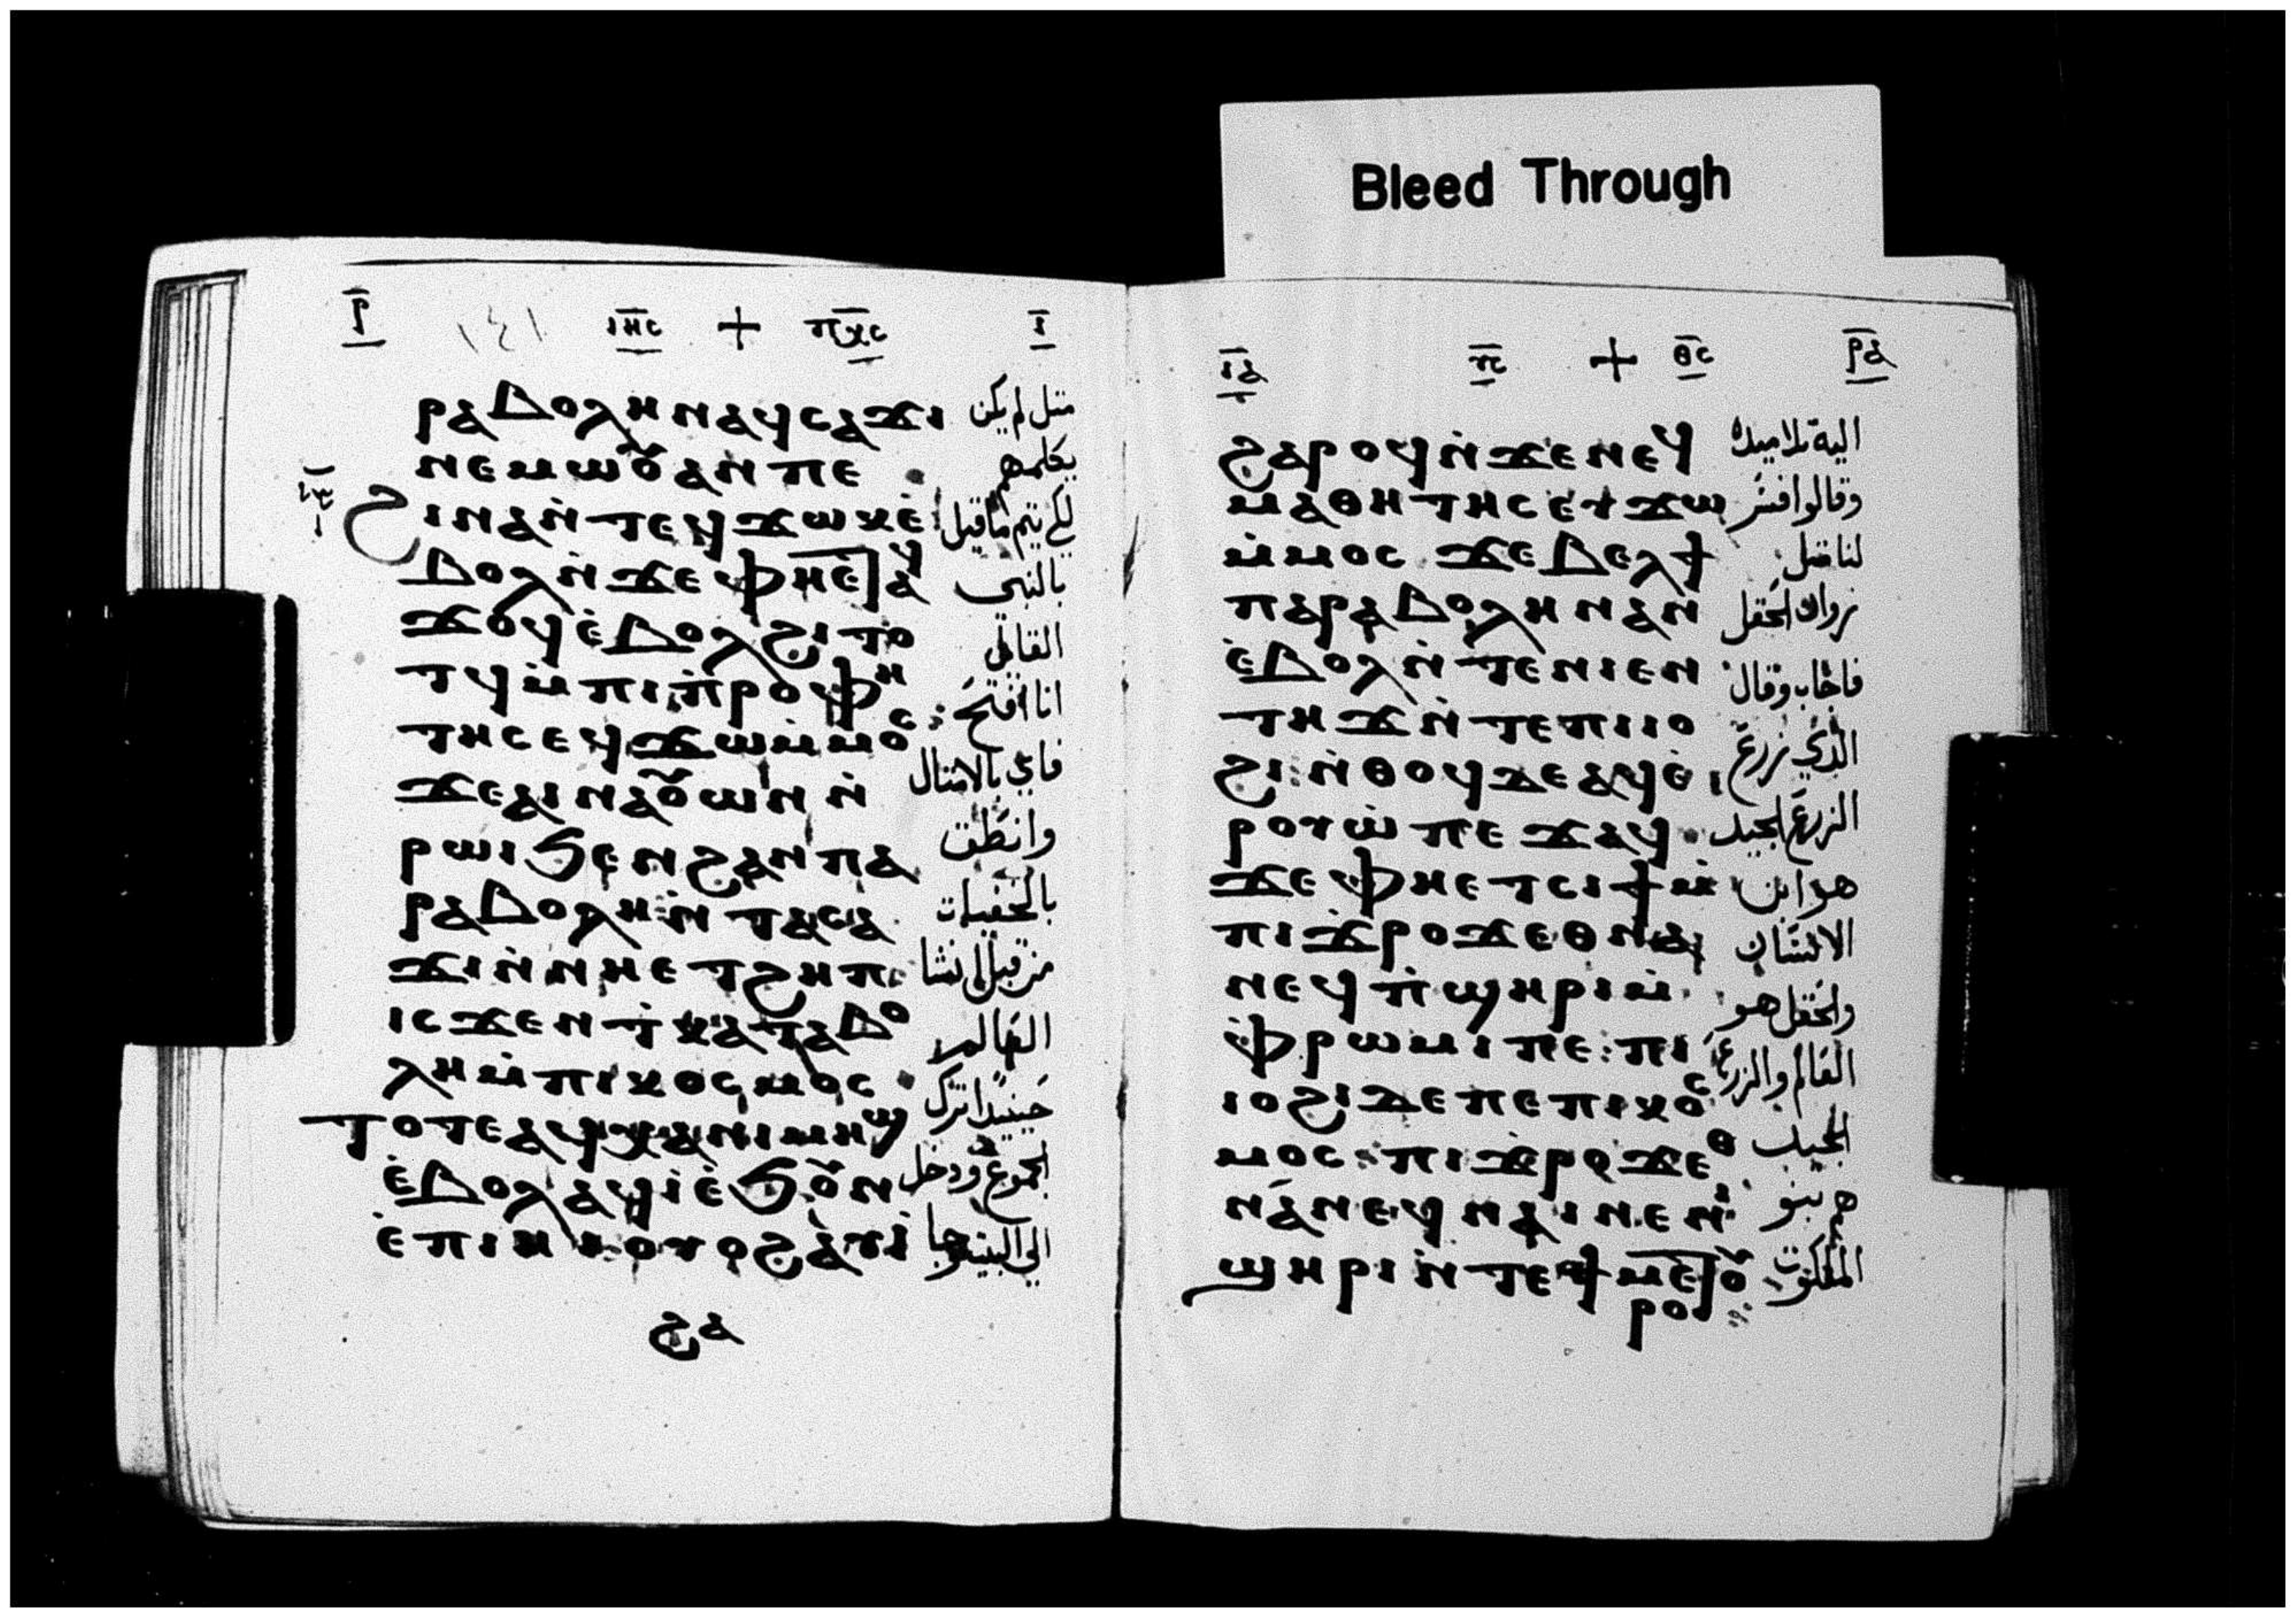 Bleed Through
ⲣ̅ ١٤١ ⲓⲏ̅ⲥ + ⲡⲭ̅ⲥ ⲓ̅
ⲣⲁⲃⲟⲗⲏ ⲛⲁϥⲥⲁϫⲓ مثل لم يكن
ⲛⲉⲙⲱⲟⲩ ⲁⲛ ⲡⲉ يكلمهم
ϩⲓⲛⲁ ⲛ̀ⲧⲉϥϫⲱⲕ ⲉ̀ لكي يتم ما قيل
ⲃⲟⲗ ⲛ̀ϫⲉ ⲫⲏⲉ̅ⲧⲁⲩ بالنبي
ϫⲟϥ ⲉ̀ⲃⲟⲗϩⲓⲧⲟ القائل
ⲧϥ ⲙ̀ⲡⲓⲡ̀ⲣⲟⲫⲏ انا افتح
ⲧⲏⲥ ⲉϥϫⲱ ⲙ̀ⲙⲟⲥ فاي بالامثال
ϫⲉ ⲁⲓⲛⲁⲟⲩⲱⲛ ⲛ̀ وانطق
ⲣⲱⲓ ϧⲉⲛ ϩⲁⲛⲡⲁ بالخفيات
ⲣⲁⲃⲟⲗⲏ ⲛ̀ⲧⲁⲥⲁ من قبل انشا
ϫⲓ ⲛ̀ⲛⲏⲉⲧϩⲏⲡ العالم
ⲓⲥϫⲉⲛ ⲧ̀ⲕⲁⲧⲁⲃⲟ حينيدا ترك
ⲗⲏ ⲙ̀ⲡⲓⲕⲟⲥⲙⲟⲥ الجموع ودخل
ⲧⲟⲧⲉ ⲁϥⲭⲁ ⲛⲓⲙⲏϣ الي البيت وجا
ⲉ̀ⲃⲟⲗ ⲁϥⲓ̀ ⲉ̀ϧⲟⲩⲛ
ⲉ̀ⲡⲓⲏⲓ ⲟⲩⲟϩ ⲁⲩⲓ̀
ϩⲁ
ⲓ̅ⲁ ⲩ̅ⲥ + ⲑ̅ⲥ ⲣ̅ⲁ
ϩⲁⲣⲟϥ ⲛ̀ϫⲉ ⲛⲉϥ اليه تلاميذه
ⲙⲁⲑⲏⲧⲏⲥ ⲉⲩϫⲱ وقالوا افسر
ⲙ̀ⲙⲟⲥ ϫⲉ ⲃⲉⲗ ϯ لنا مثل
ⲡⲁⲣⲁⲃⲟⲗⲏ ⲛⲁⲛ زوان الحقل
ⲉ̀ⲃⲟⲗ ⲛ̀ⲧⲉ ⲛⲓⲉⲛ فاجاب وقال
ⲧⲏϫ ⲛ̀ⲧⲉ ⲡⲓⲓⲟ الذي زرع
ϩⲓ ⲛ̀ⲑⲟϥ ⲇⲉ ⲁϥⲉ̀ⲣ الزرع الجيد
ⲣⲟⲩⲱ̀ ⲡⲉϫⲁϥ هو ابن
ϫⲉ ⲫⲏⲉⲧⲥⲓϯ ⲙ̀ الانسان
ⲡⲓϫ̀ⲣⲟϫ ⲉⲑⲛⲁ والحقل هو
ⲛⲉϥ ⲡ̀ϣⲏⲣⲓ ⲙ̀ العالم والزرع
ⲫ̀ⲣⲱⲙⲓ ⲡⲉ ⲡⲓ الجيد
ⲓⲟϩⲓ ⲇⲉ ⲡⲉ ⲡⲓⲕⲟⲥ هم بنو
ⲙⲟⲥ ⲡⲓϫ̀ⲣⲟϫ ⲉⲑ الملكوت
ⲛⲁⲛⲉϥ ⲛⲁⲓ ⲛⲉ ⲛⲓ
ϣⲏⲣⲓ ⲛ̀ⲧⲉ ϯⲙⲉⲧⲟⲩ
ⲣⲟ